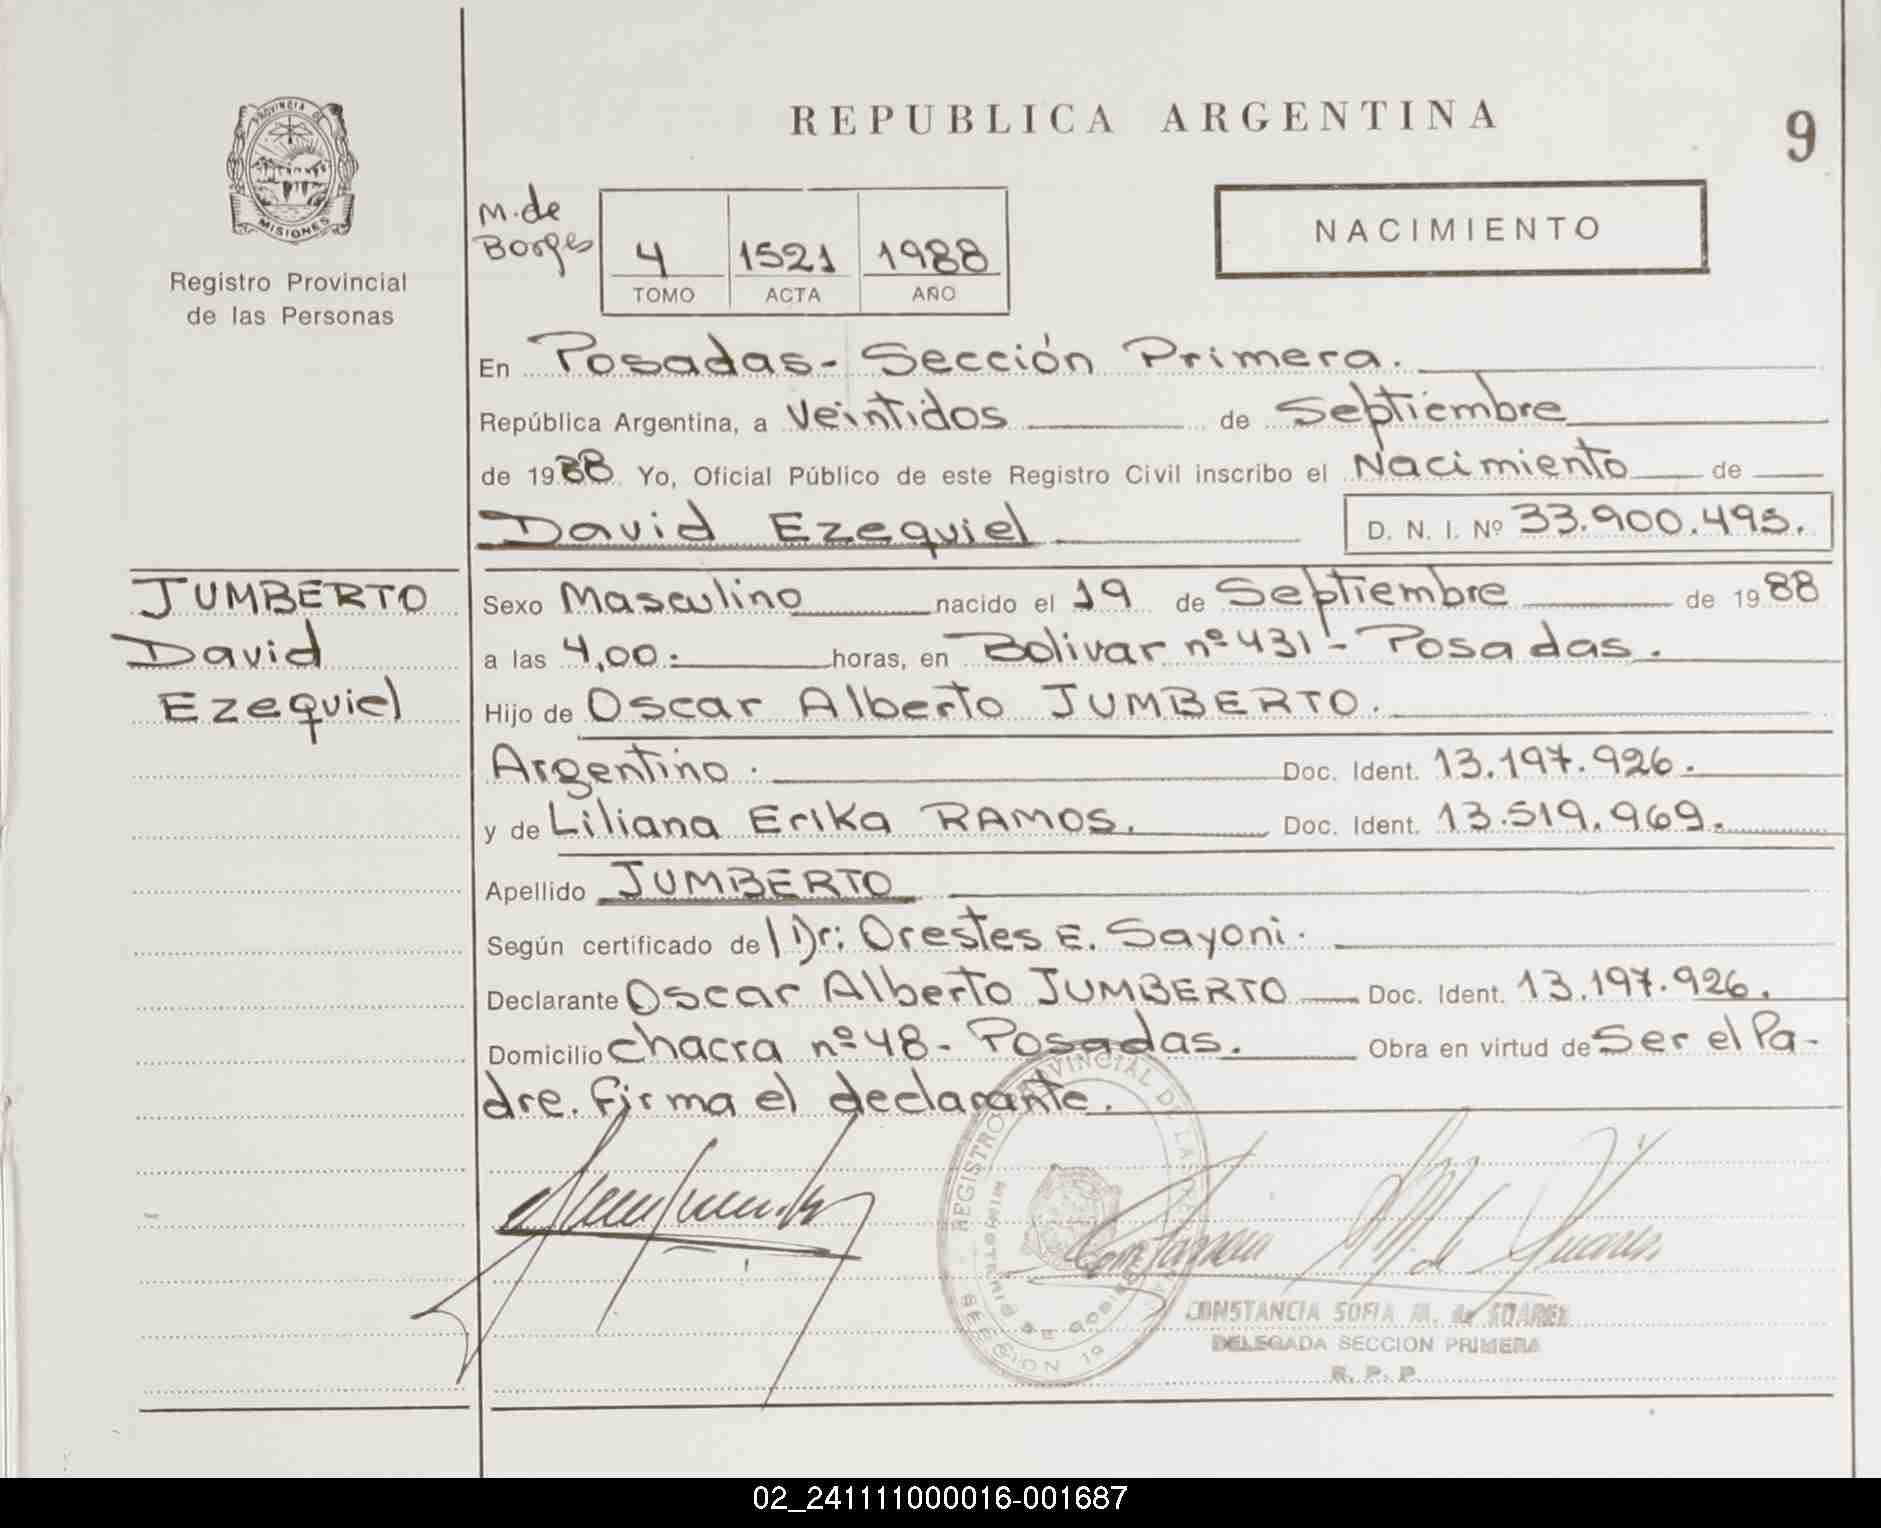 REPUBLICA ARGENTINA
9
PROVINCIA DE
MISIONES
Registro Provincial
de las Personas
M. de
Borges
4 1521 1988
TOMO ACTA AÑO
NACIMIENTO
En Posadas- Sección Primera.
República Argentina, a Veintidos de Septiembre
de 1988 Yo, Oficial Público de este Registro Civil inscribo el Nacimiento de
David Ezequiel D. N. I. Nº 33.900.495.
JUMBERTO
David
Ezequiel
Sexo Masculino nacido el 19 de Septiembre de 1988
a las 4,00: horas, en Bolivar nº 431 - Posadas.
Hijo de Oscar Alberto JUMBERTO.
Argentino. Doc. Ident. 13.197.926.
y de Liliana Erika RAMOS. Doc. Ident. 13.519.969.
Apellido JUMBERTO
Según certificado de Dr: Orestes E. Sayoni.
Declarante Oscar Alberto JUMBERTO Doc. Ident. 13.197.926.
Domicilio chacra nº 48- Posadas. Obra en virtud de Ser el Pa-
dre. firma el declarante.
REGISTRO PROVINCIAL DE LA
MINISTERIO DE GOBIE
SECCION 1a
Constancia M. de Suarez
CONSTANCIA SOFIA M. de SUAREZ
DELEGADA SECCION PRIMERA
R. P. P.
02_241111000016-001687